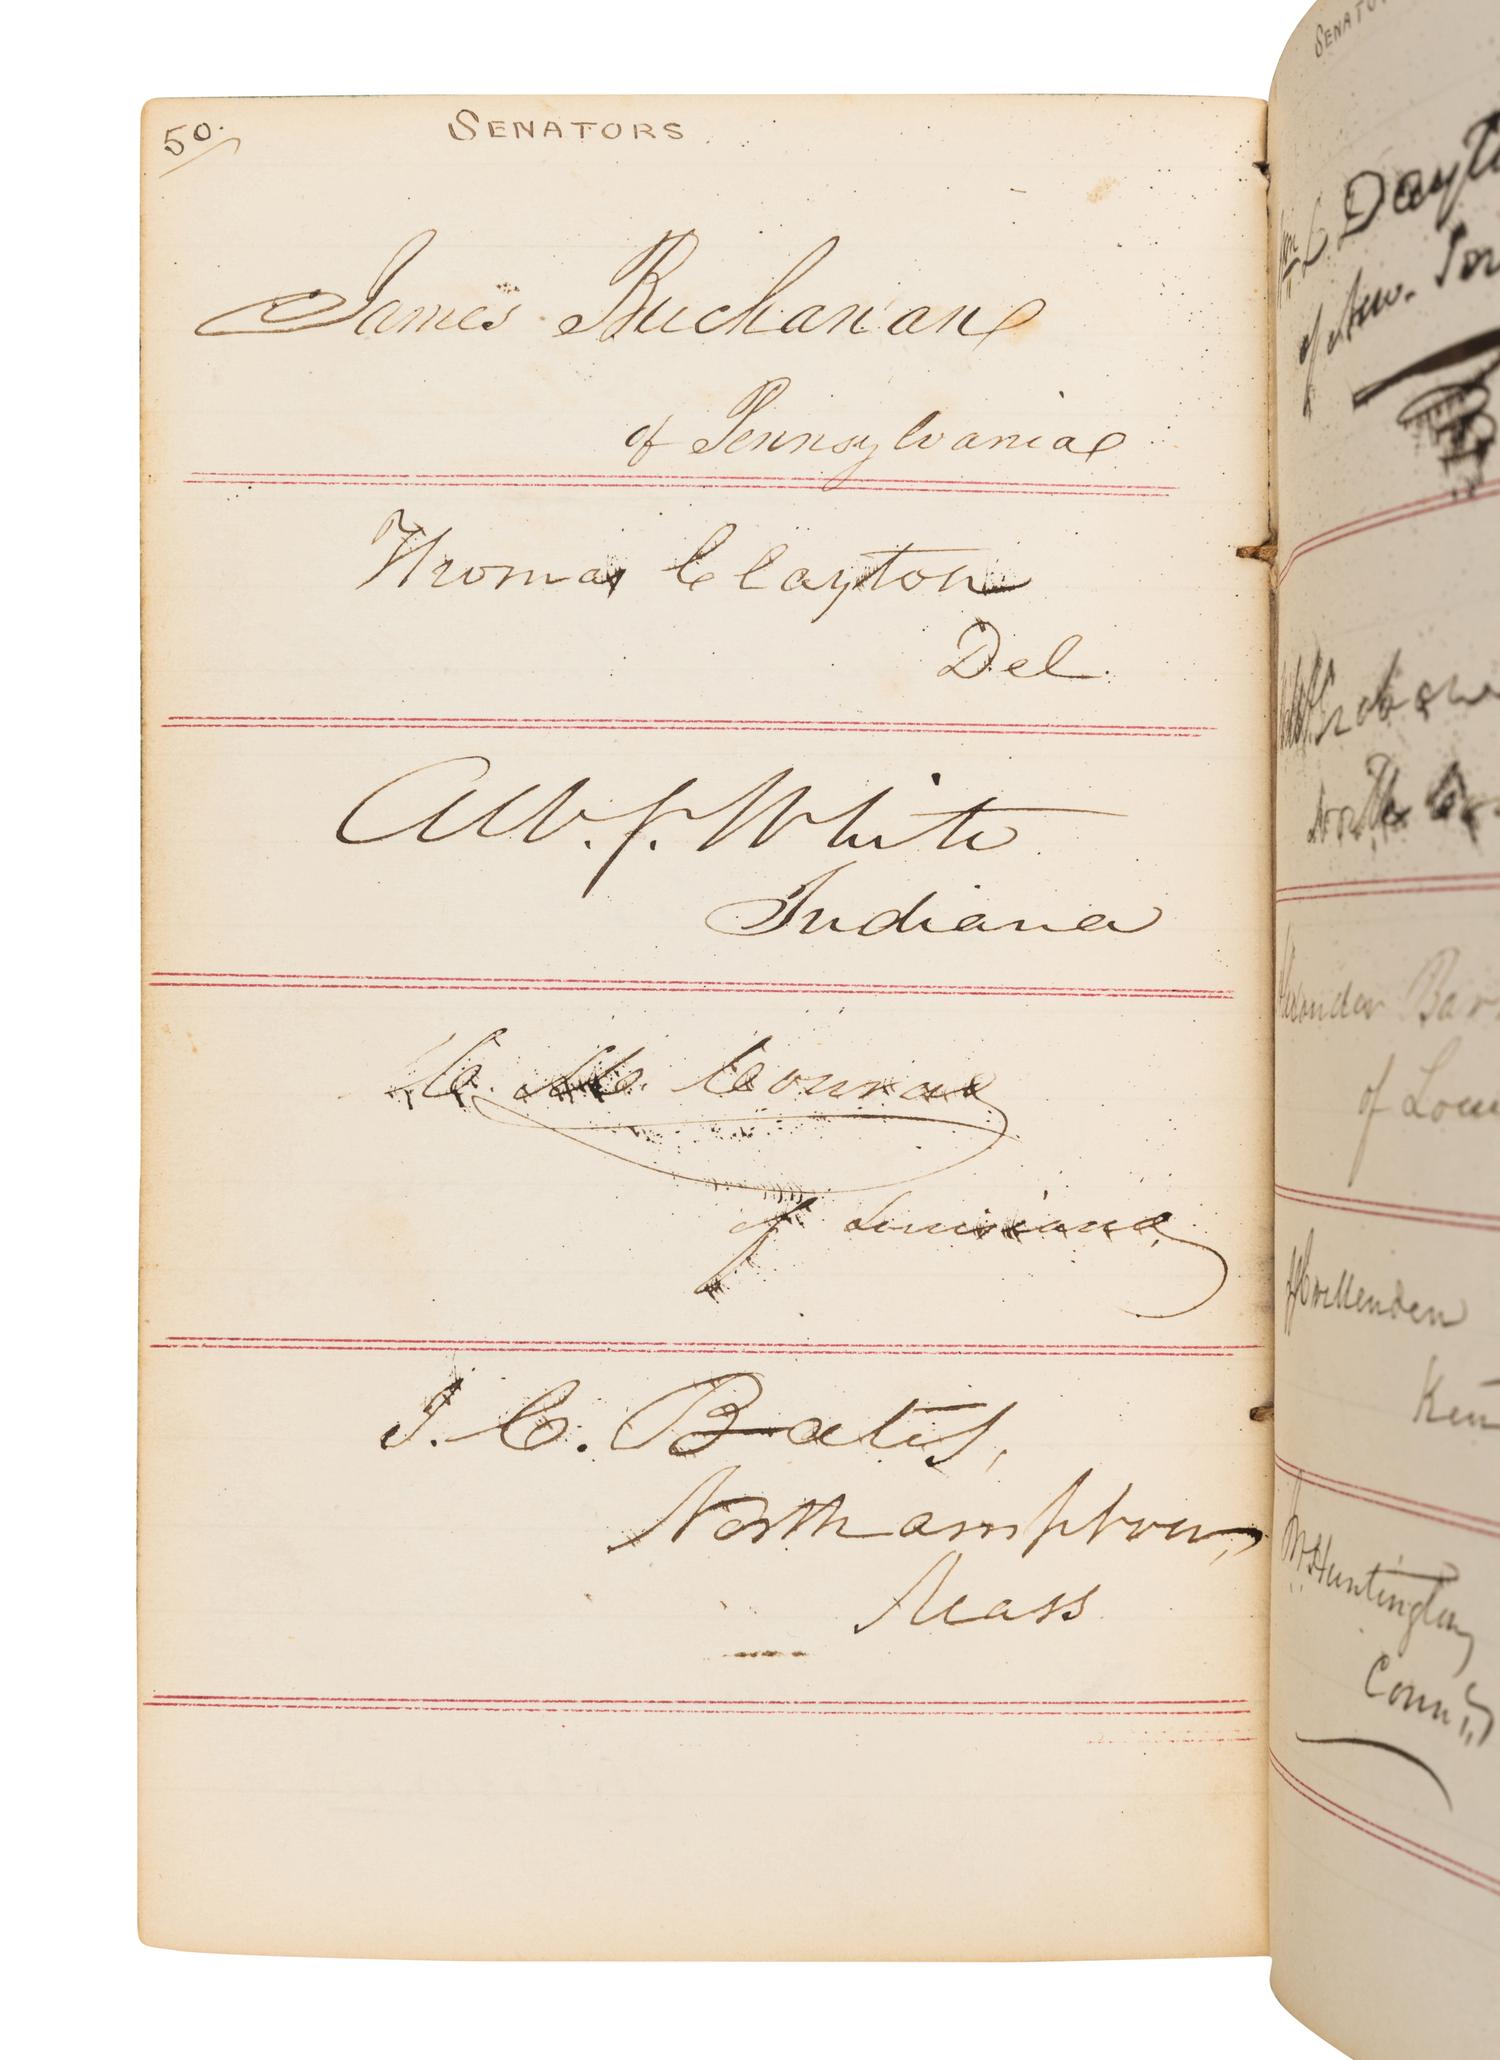 50.
SENATORS
James Buchanan
of Pennsylvania
Thomas Clayton
Del.
Alb. S. White
Indiana
C. M. Conrad
of Louisiana
I. C. Bates,
Northampton,
Mass
SENATO
Wm L. Dayt
of New. Jer
of Lou
Crittenden
Ken
Huntington
Conn,